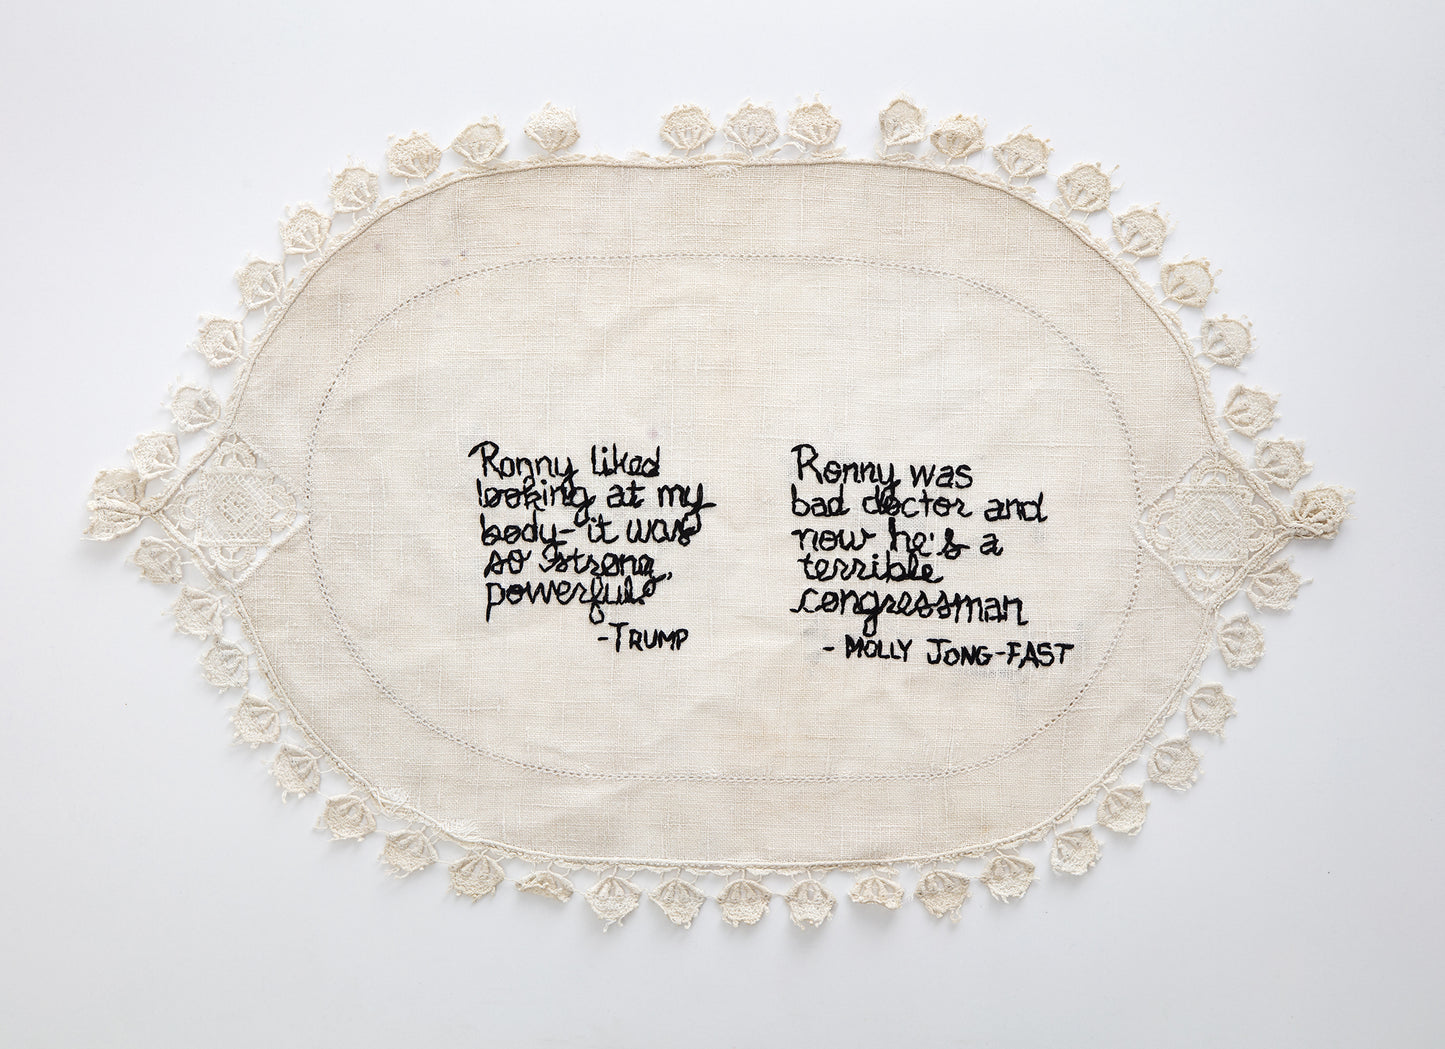 Ronny liked
looking at my
body-it was
so strong,
powerful.
-TRUMP
Ronny was
bad doctor and
now he's a
terrible
congressman
- MOLLY JONG-FAST